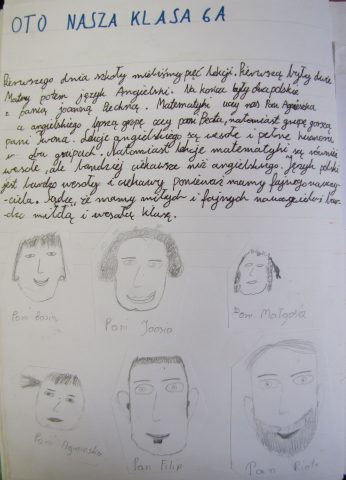 OTO NASZA KLASA 6A
Pierwszego dnia szkoły mieliśmy pięć lekcji. Pierwszą były dwie
Matmy potem język Angielski. Na końcu były dwa polskie
z panią Joanną Rechną. Matematyki uczy nas Pani Agnieszka
a angielskiego lepszą grupę uczy pani Basia, natomiast grupę gorszą
pani Iwona. Lekcje angielskiego są wesołe i pełne
w obu grupach. Natomiast lekcje matematyki są również
wesołe, ale bardziej ciekawsze niż angielskiego. Język polski
jest bardzo wesoły i ciekawy ponieważ mamy fajnego nauczy-
ciela. Sądzę, że mamy miłych i fajnych nauczycieli i bar-
dzo miłą i wesołą klasę.
Pani Basia
Pani Joasia
Pani Małgosia
Pani Agnieszka
Pan Filip
Pan Piotr